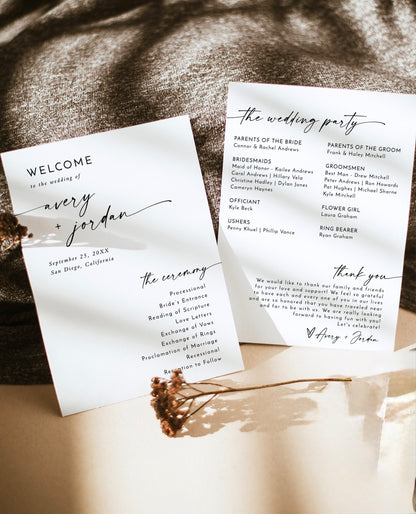 WELCOME
to the wedding of
avery
+ jordan
September 25, 20XX
San Diego, California
the ceremony
Processional
Bride's Entrance
Reading of Scripture
Love Letters
Exchange of Vows
Exchange of Rings
Proclamation of Marriage
Recessional
Reception to Follow
the wedding party
PARENTS OF THE BRIDE
Connor & Rachel Andrews
PARENTS OF THE GROOM
Frank & Haley Mitchell
BRIDESMAIDS
Maid of Honor - Kailee Andrews
Carol Andrews | Hillary Velo
Christine Hadley | Dylan Jones
Cameryn Haynes
GROOMSMEN
Best Man - Drew Mitchell
Peter Andrews | Ron Howards
Pat Hughes | Michael Sharne
Kyle Mitchell
OFFICIANT
Kyle Beck
FLOWER GIRL
Laura Graham
USHERS
Penny Khuel | Phillip Vance
RING BEARER
Ryan Graham
thank you
We would like to thank our family and friends
for your love and support! We feel so grateful
to have each and every one of you in our lives
and are so honored that you have traveled near
and far to be with us. We are really looking
forward to having fun with you!
Let's celebrate!
Avery + Jordan